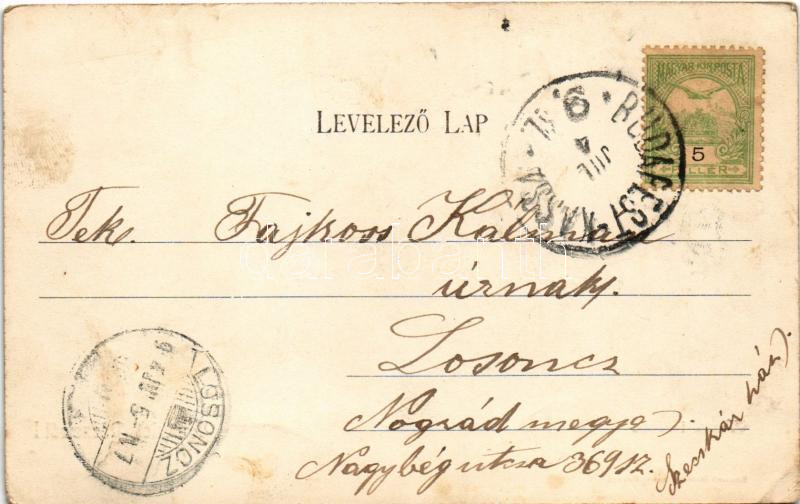 LEVELEZŐ LAP
MAGYAR KIR. POSTA
5
FILLÉR
BUDAPEST
JUL
Tek. Fajkoss Kálmán
úrnak.
Losoncz
Nográd megye).
Nagybég utcza 369 sz.
LOSONCZ
darabanth